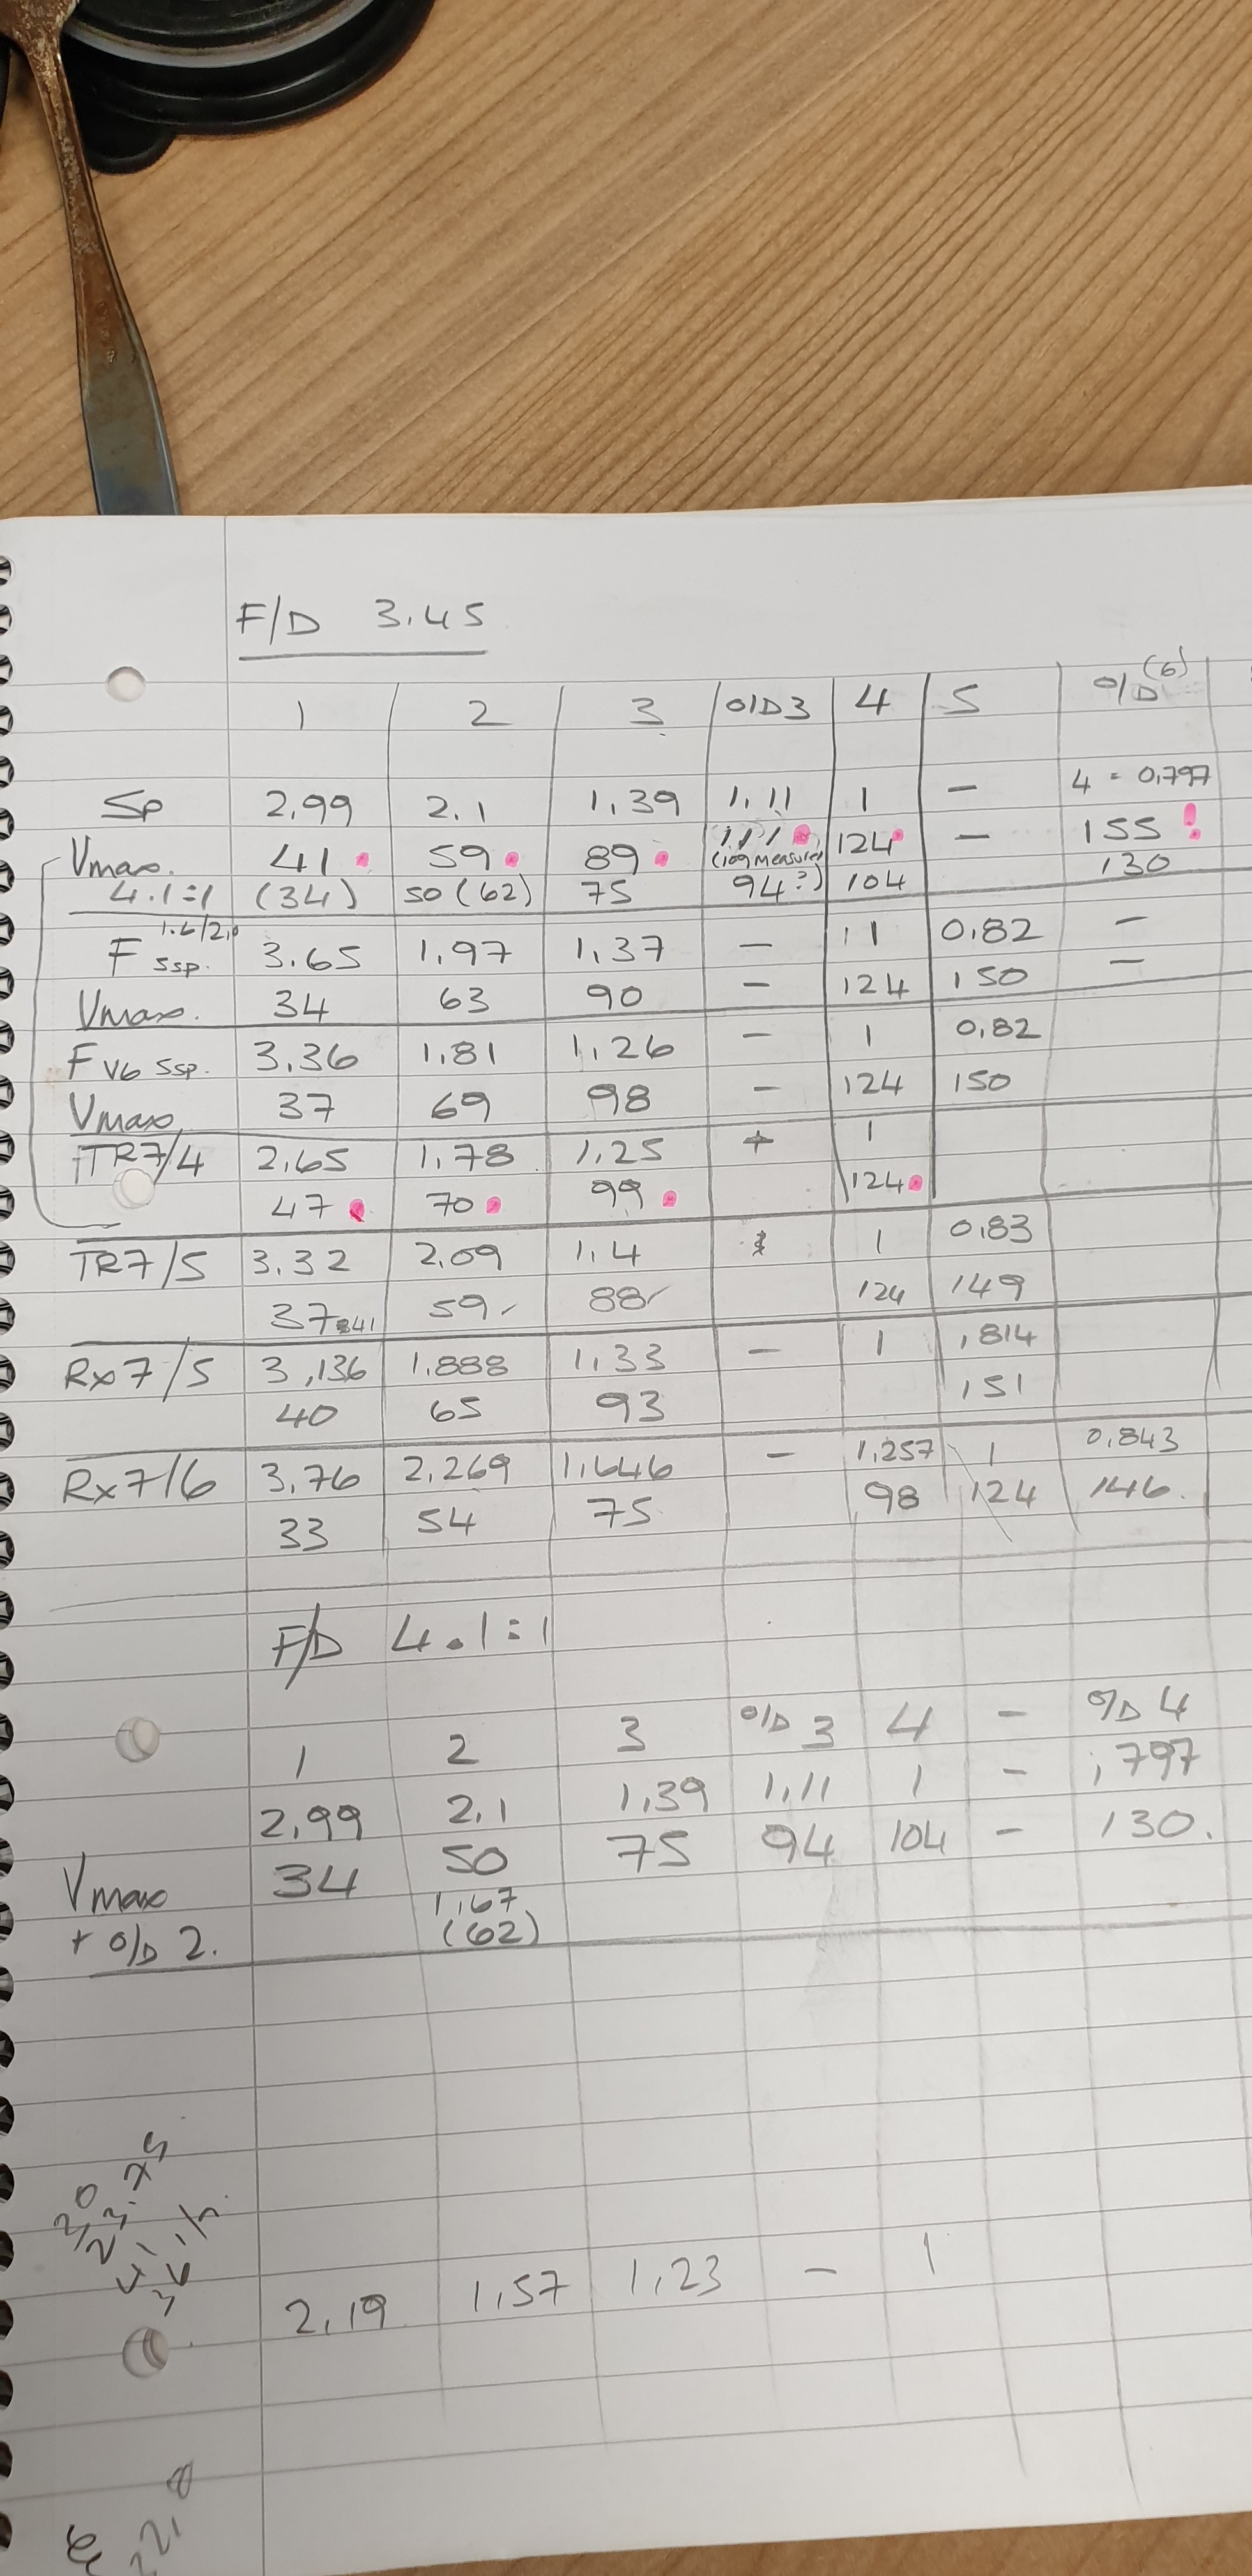 F/D 3.45
1 2 3 O/D3 4 5 O/D (6)
Sp 2.99 2.1 1.39 1.11 1 - 4 = 0.797
Vmax. 41 59 89 111 124 - 155 !
4.1=1 (34) 50 (62) 75 (109 measured 94?) 104 130
F 1.6/2.0 ssp. 3.65 1.97 1.37 - 1 0.82 -
Vmax. 34 63 90 - 124 150 -
F V6 ssp. 3.36 1.81 1.26 - 1 0.82
Vmax 37 69 98 - 124 150
TR7/4 2.65 1.78 1.25 + 1
47 70 99 124
TR7/5 3.32 2.09 1.4 1 0.83
37 59 88 124 149
Rx7/5 3.136 1.888 1.33 - 1 .814
40 65 93 151
Rx7/6 3.76 2.269 1.646 - 1.257 1 0.843
33 54 75 98 124 146.
F/D 4.1=1
1 2 3 O/D 3 4 - O/D 4
2.99 2.1 1.39 1.11 1 - .797
Vmax 34 50 75 94 104 - 130.
+ O/D 2. 1.67
(62)
2.19 1.57 1.23 - 1